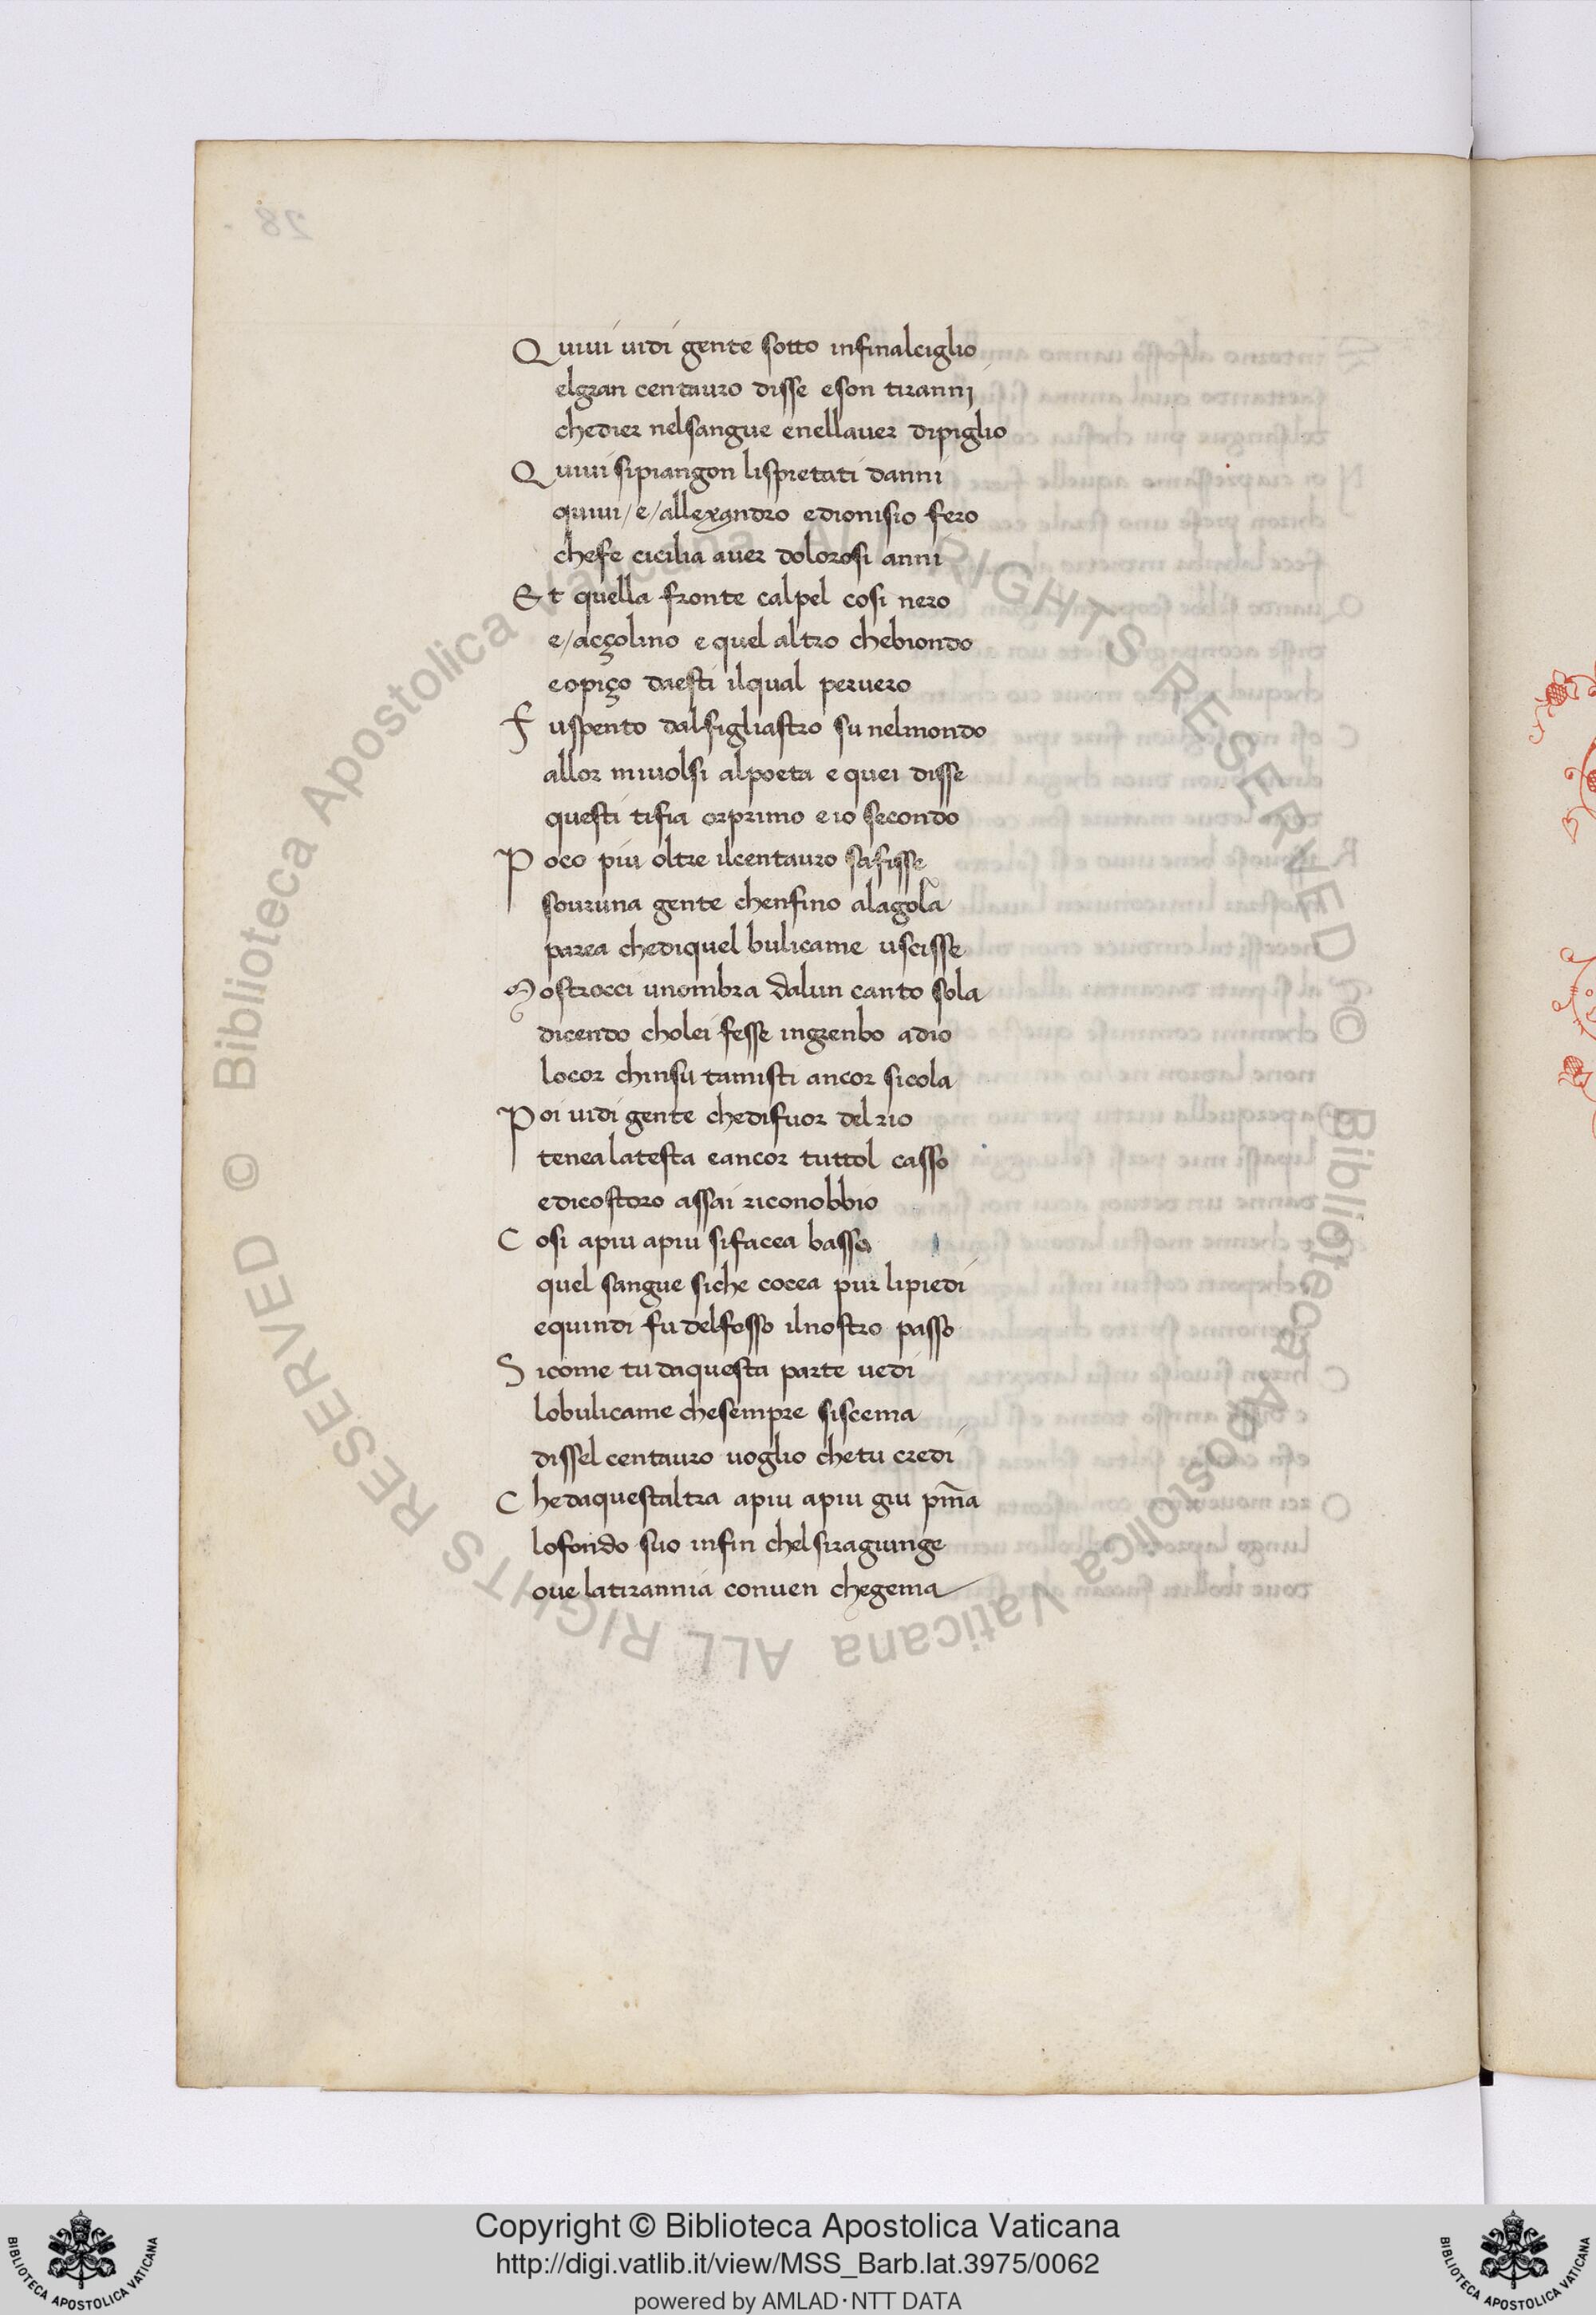 Quiui uidi gente sotto infinalciglio
elgran centauro disse eson tiranni
chedier nelsangue enellauer dipiglio
Quiui sipiangon lispietati danni
quiui/e/allexandro edionisio fero
chefe cicilia auer dolorosi anni
Et quella fronte calpel cosi nero
e/acçolino e quel altro chebiondo
eopiço daesti ilqual peruero
fuspento dalfigliastro su nelmondo
allor miuolsi alpoeta e quei disse
questi tifia orprimo eio secondo
Poco piu oltre ilcentauro safisse
souruna gente chenfino alagola
parea chediquel bulicame uscisse
Mostrocci unombra dalun canto sola
dicendo cholei fesse ingrenbo adio
locor chinsu tamisti ancor sicola
Poi uidi gente chedifuor del rio
tenea latesta eancor tuttol casso
edicostoro assai riconobbio
Cosi apiu apiu sifacea basso
quel sangue siche cocea pur lipiedi
equindi fu delfosso ilnostro passo
Sicome tu daquesta parte uedi
lobulicame chesempre siscema
dissel centauro uoglio chetu credi
Chedaquestaltra apiu apiu giu pm̄a
lofondo suo infin chelsiragiunge
oue latirannia conuen chegema
28
© Biblioteca Apostolica Vaticana ALL RIGHTS RESERVED
© Biblioteca Apostolica Vaticana ALL RIGHTS RESERVED
Copyright © Biblioteca Apostolica Vaticana
http://digi.vatlib.it/view/MSS_Barb.lat.3975/0062
powered by AMLAD·NTT DATA
BIBLIOTECA APOSTOLICA VATICANA
BIBLIOTECA APOSTOLICA VATICANA